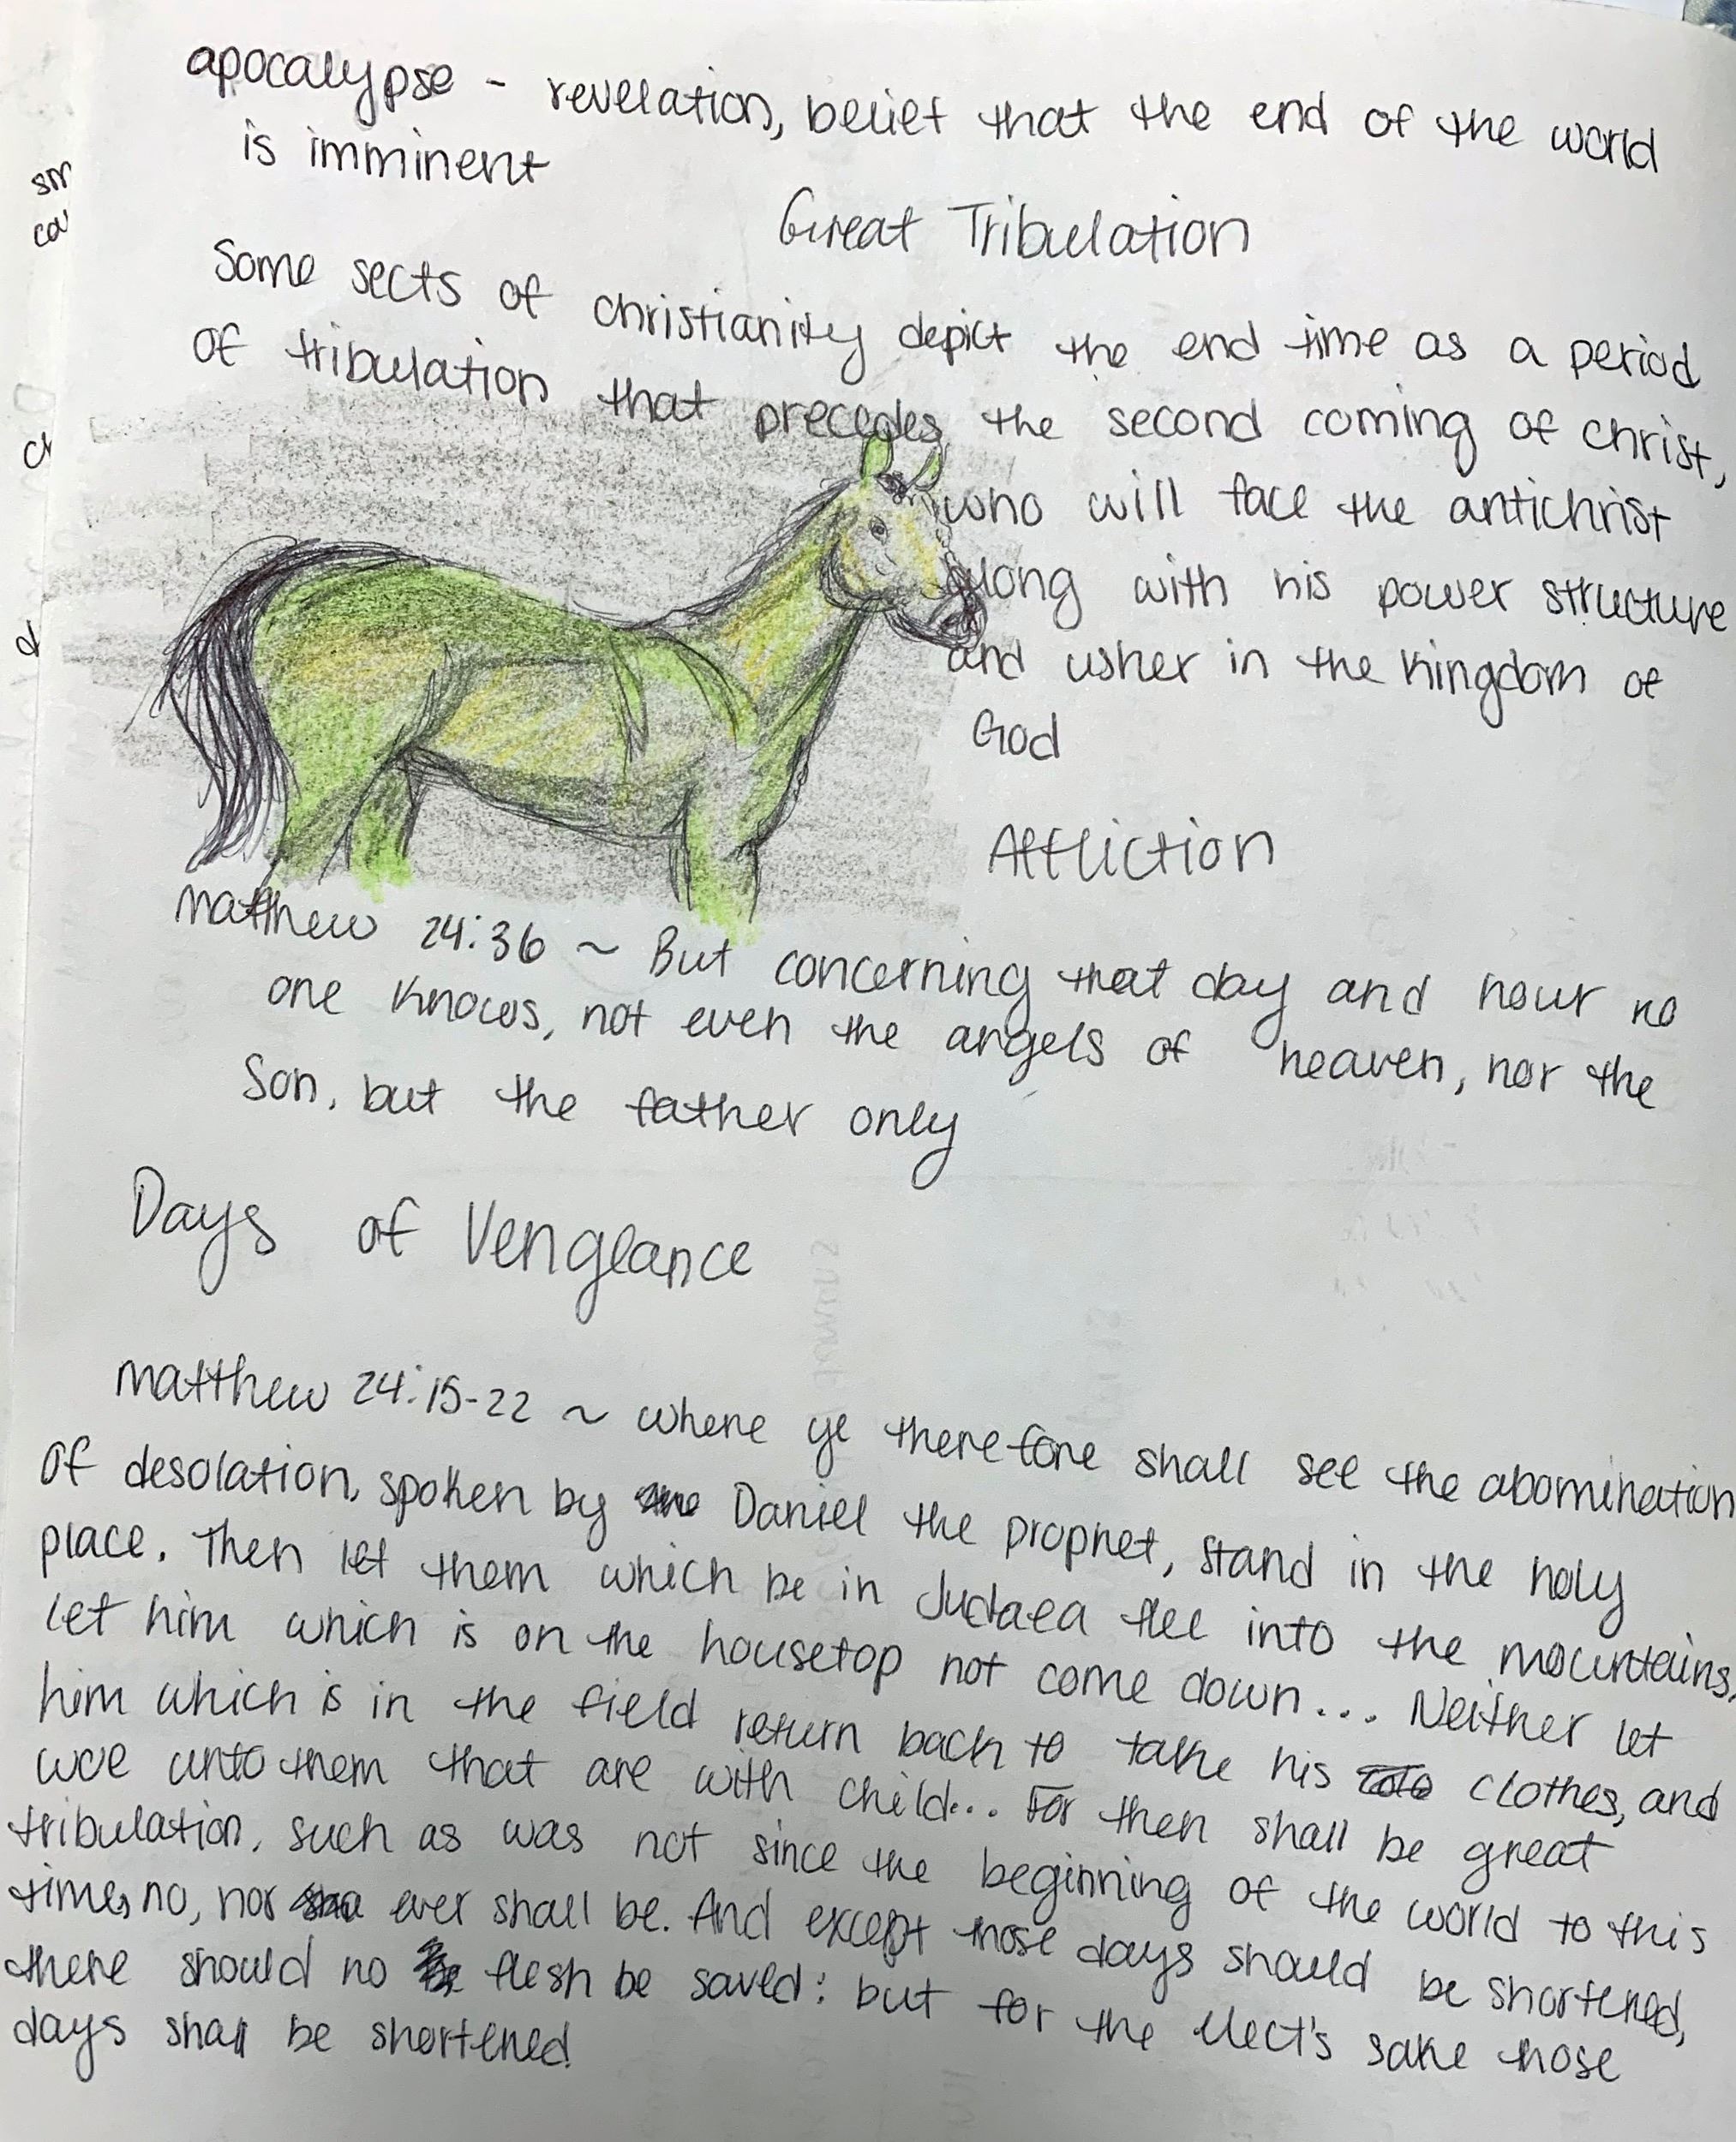 apocalypse - revelation, belief that the end of the world
is imminent
Great Tribulation
Some sects of christianity depict the end time as a period
of tribulation that precedes the second coming of christ,
who will face the antichrist
along with his power structure
and usher in the kingdom of
God
Affliction
matthew 24:36 ~ But concerning that day and hour no
one knows, not even the angels of heaven, nor the
Son, but the father only
Days of Vengeance
matthew 24:15-22 ~ where ye therefore shall see the abomination
of desolation, spoken by the Daniel the prophet, stand in the holy
place. Then let them which be in Judaea flee into the mountains.
let him which is on the housetop not come down... Neither let
him which is in the field return back to take his clothes, and
woe unto them that are with child... For then shall be great
tribulation, such as was not since the beginning of the world to this
time, no, nor sha ever shall be. And except those days should be shortened,
there should no flesh be saved: but for the elect's sake those
days shall be shortened
sm
ca